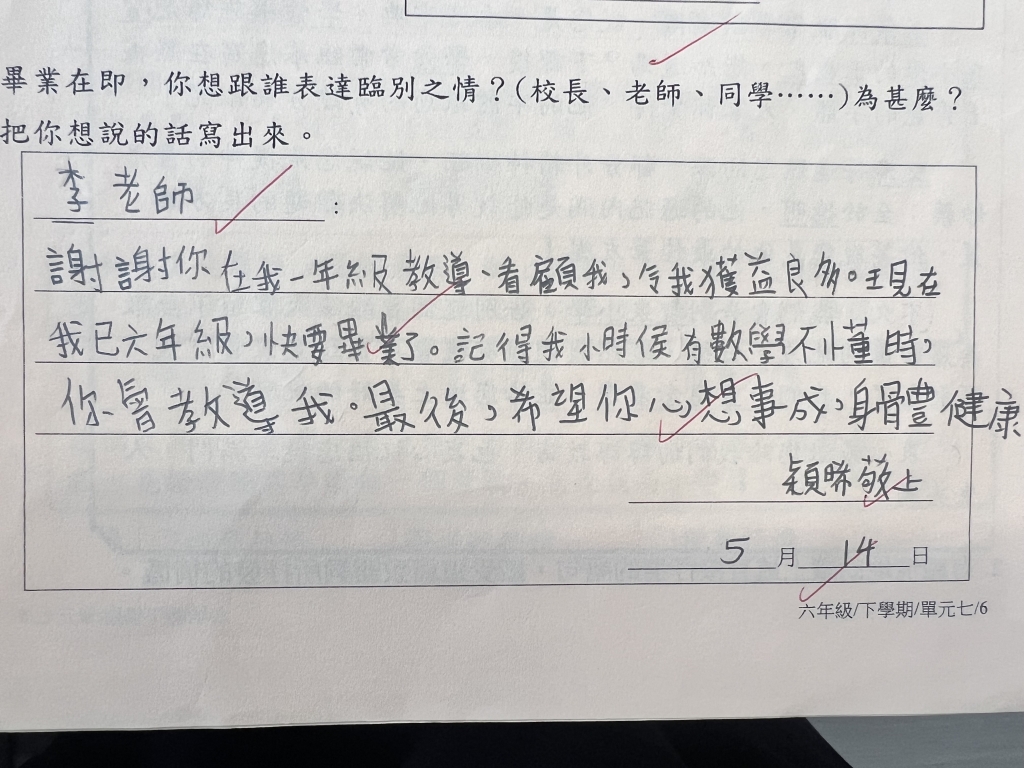 畢業在即，你想跟誰表達臨別之情？(校長、老師、同學……)為甚麼？
把你想說的話寫出來。
李老師：
謝謝你在我一年級教導、看顧我，令我獲益良多。現在
我已六年級，快要畢業了。記得我小時侯有數學不懂時，
你曾教導我。最後，希望你心想事成，身體健康
穎晞敬上
5月14日
六年級/下學期/單元七/6